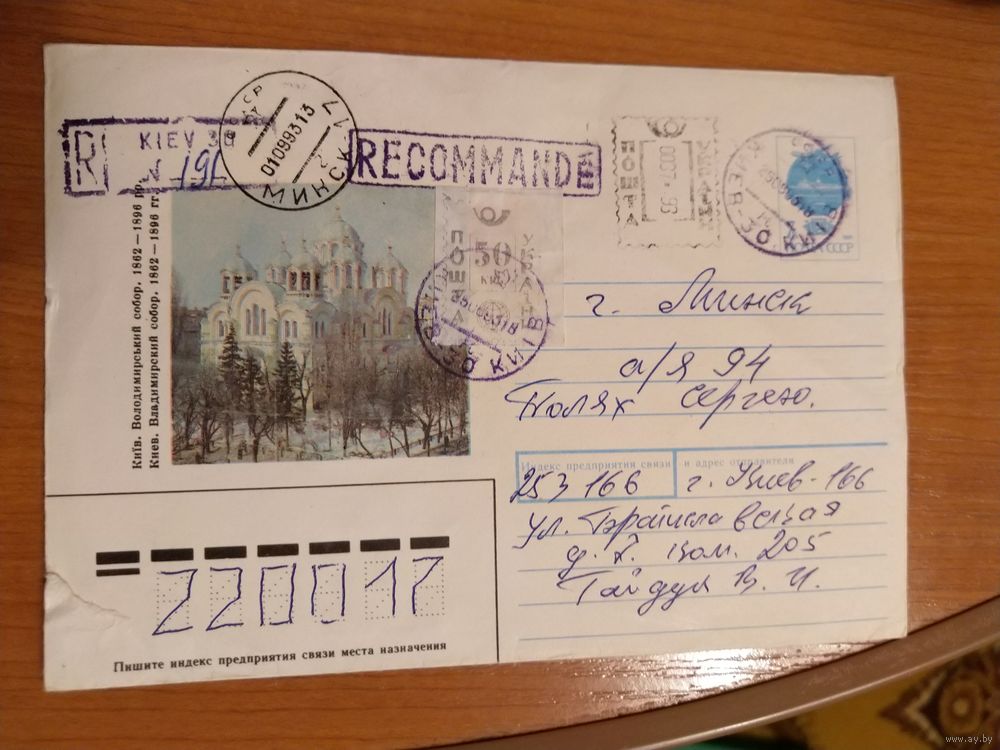 R
KIEV 30
№ 191
МИНСК 17
01099313
RECOMMANDE
УКРАЇНА
ПОШТА
0007
93
КИЕВ-30 КИЇВ
ПОЧТА СССР
УКРАЇНА
50
ПОШТА
КИЇВ
Київ. Володимирський собор. 1862—1896 рр.
Киев. Владимирский собор. 1862—1896 гг.
г. Минск
а/я 94
Полях Сергею.
Индекс предприятия связи и адрес отправителя
253166 г. Киев-166
ул.
д. 7. ком. 205
Гайдук В. И.
220017
Пишите индекс предприятия связи места назначения
www.ay.by